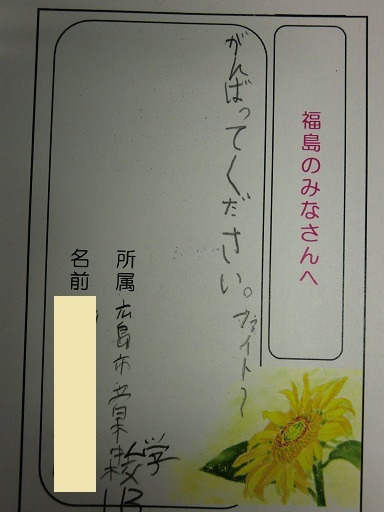 福島のみなさんへ
がんばってください。ファイト〜
所属 広島市立
名前